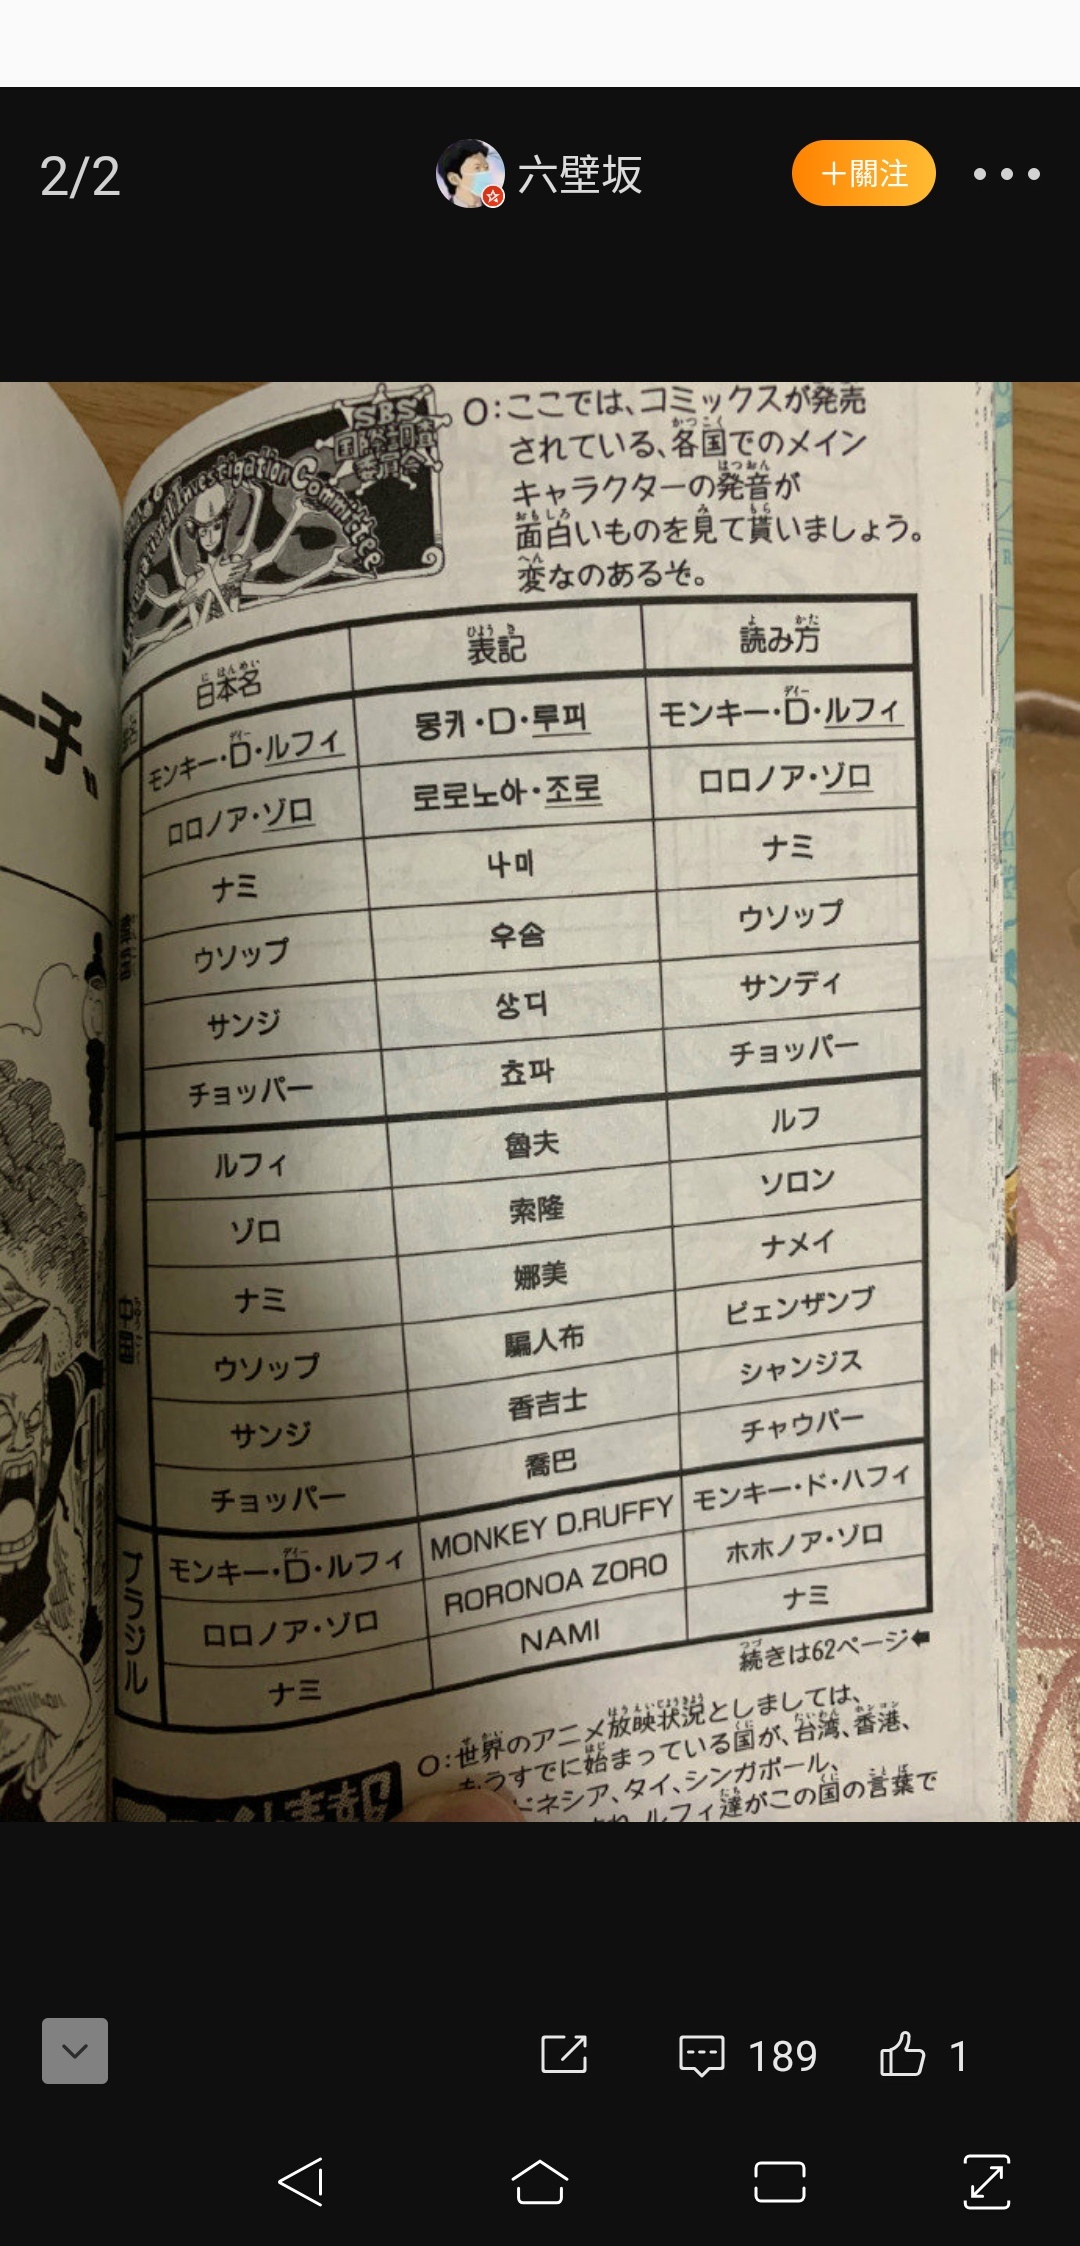 2/2
六壁坂
＋關注
SBS
国際調査
委員会
Investigation Committee
O:ここでは、コミックスが発売
されている、各国でのメイン
キャラクターの発音が
面白いものを見て貰いましょう。
変なのあるぞ。
日本名 表記 読み方
モンキー・D・ルフィ 몽키・D・루피 モンキー・D・ルフィ
ロロノア・ゾロ 로로노아・조로 ロロノア・ゾロ
ナミ 나미 ナミ
ウソップ 우솝 ウソップ
サンジ 상디 サンディ
チョッパー 쵸파 チョッパー
中国
ルフィ 魯夫 ルフ
ゾロ 索隆 ソロン
ナミ 娜美 ナメイ
ウソップ 騙人布 ピェンザンブ
サンジ 香吉士 シャンジス
チョッパー 喬巴 チャウパー
ブラジル
モンキー・D・ルフィ MONKEY D.RUFFY モンキー・ド・ハフィ
ロロノア・ゾロ RORONOA ZORO ホホノア・ゾロ
ナミ NAMI ナミ
続きは62ページ
O:世界のアニメ放映状況としましては、
もうすでに始まっている国が、台湾、香港、
ドネシア、タイ、シンガポール、
ルフィ達がこの国の言葉で
189
1